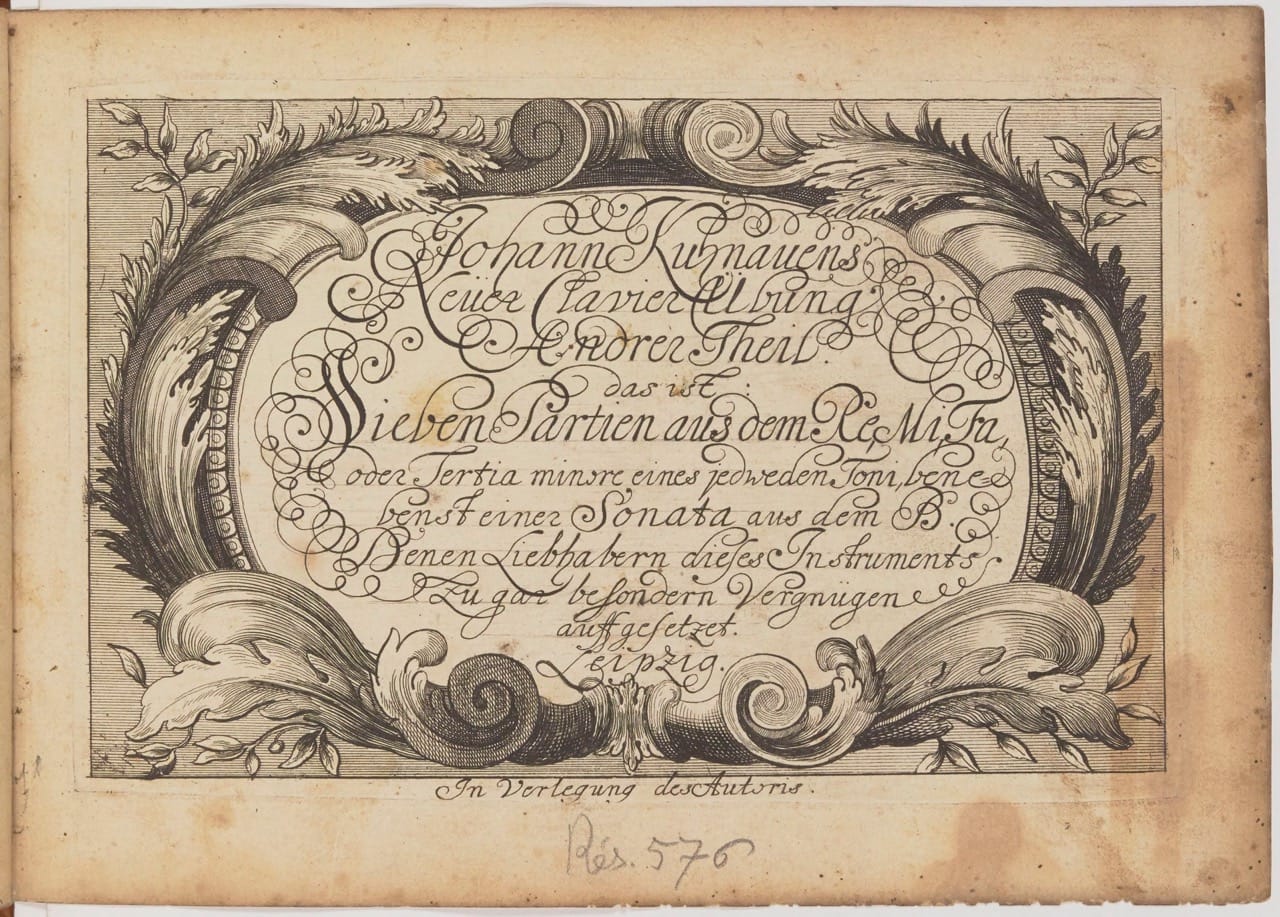 Johann Kuhnauens
Neüer Clavier Ubung
Andrer Theil.
das ist:
Sieben Partien aus dem Re, Mi, Fa,
oder Tertia minore eines jedweden Toni, bene=
benst einer Sonata aus dem B.
Denen Liebhabern dieses Instruments
Zu gar besondern Vergnügen
auffgesetzet.
Leipzig.
In Verlegung des Autoris.
Rés. 576